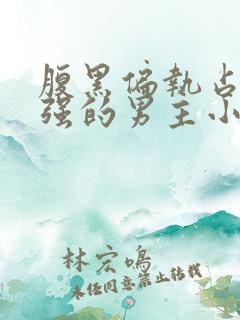 腹黑偏执占
强的男主小
林宏鸣
未经同意禁止转载